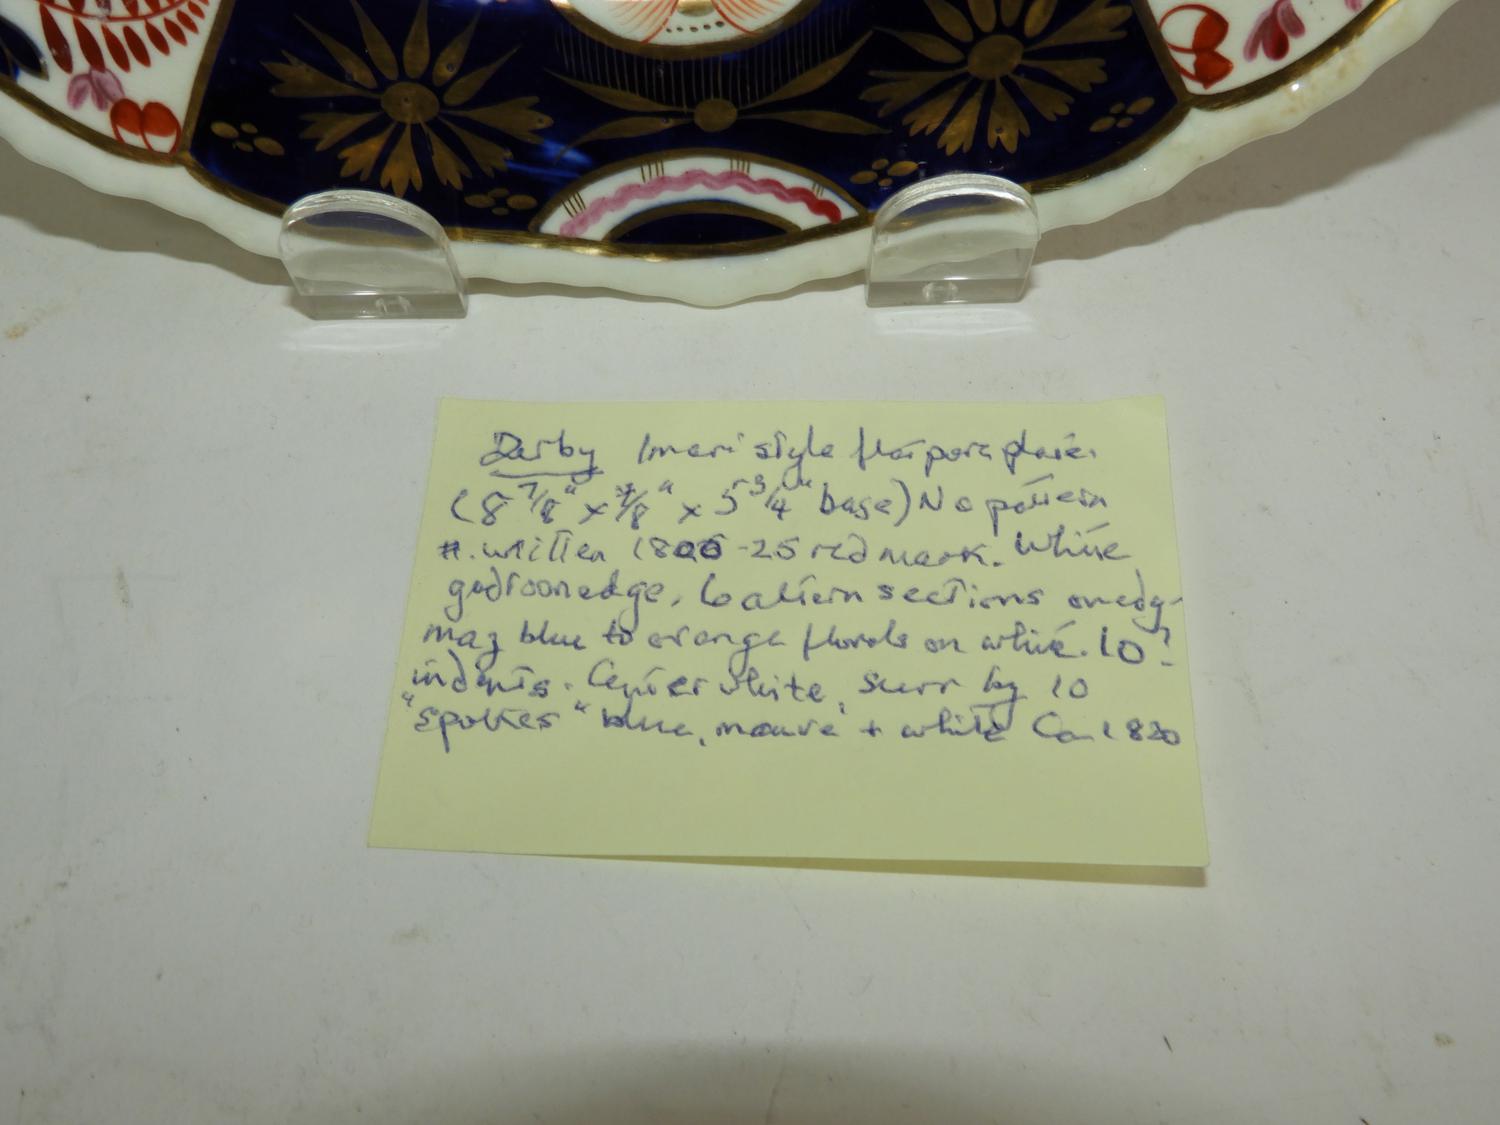 Derby Imari style flat porc plate.
(8 7/8" x 7/8" x 5 3/4" base) No pattern
#. written 1806-25 red mark. White
gadroon edge. 6 altern sections on edg-
maz blue to orange florals on white. 10?
indents. Center white, surr by 10
"spokes" blue, mauve + white Ca 1820